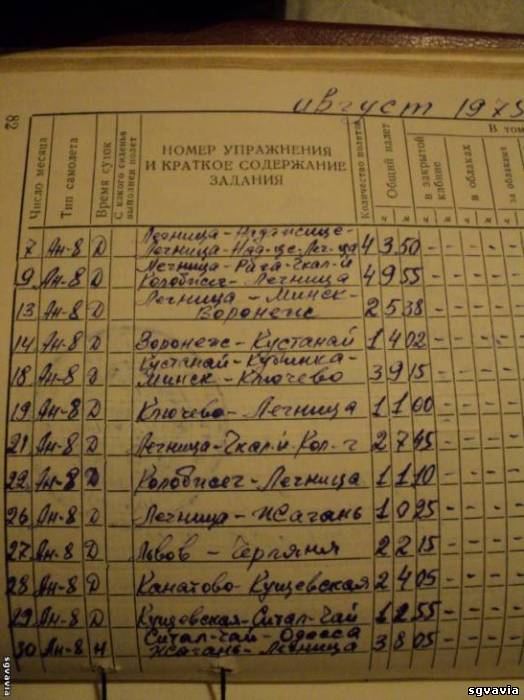 август 1975
82
Число месяца
Тип самолета
Время суток
С какого сиденья выполнен полет
НОМЕР УПРАЖНЕНИЯ
И КРАТКОЕ СОДЕРЖАНИЕ
ЗАДАНИЯ
Количество полетов
Общий налет
В том
в закрытой кабине
в облаках
за облаками
ч м ч м ч м ч
7 Ан-8 Д Легница-
Легница- 4 3 50 - - - - -
9 Ан-8 Д Легница-Рига-Чкал-й
Колобжег-Легница 4 9 55 - - - - -
13 Ан-8 Д Легница-Минск-
Воронеж 2 5 38 - - - - -
14 Ан-8 Д Воронеж-Кустанай 1 4 02 - - - - -
18 Ан-8 Д Кустанай-Кубинка-
Минск-Ключево 3 9 15 - - - - -
19 Ан-8 Д Ключево-Легница 1 1 00 - - - - -
21 Ан-8 Д Легница-Чкал-й-Кол-г 2 7 45 - - - - -
22 Ан-8 Д Колобжег-Легница 1 1 10 - - - - -
26 Ан-8 Д Легница-Жагань 1 0 25 - - - - -
27 Ан-8 Д Львов- 2 2 15 - - - - -
28 Ан-8 Д Канатово-Кущевская 2 4 05 - - - - -
29 Ан-8 Д Кущевская-Ситал-Чай 1 2 55 - - - - -
30 Ан-8 Н Ситал-чай-Одесса
Жагань-Легница 3 8 05 - - - - -
sgvavia
sgvavia